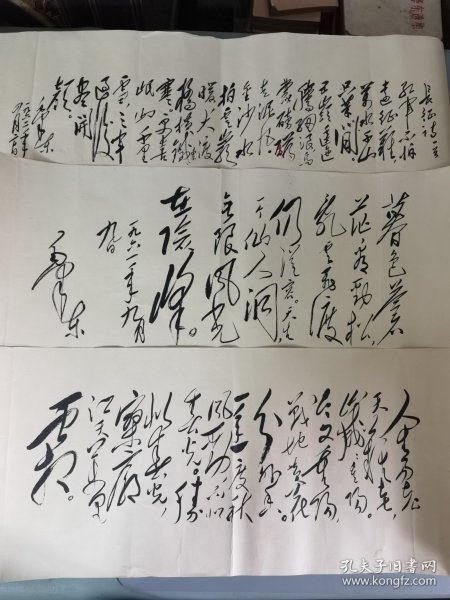 长征诗一首
红军不怕
远征难
万水千山
只等闲。
五岭逶迤
腾细浪乌
蒙磅礴
走泥丸。
金沙水
拍云崖
暖大渡
桥横铁索
寒更喜
岷山千里
雪三军
过后
尽开
颜。
毛泽东
暮色苍
茫看劲松,
乱云飞渡
仍从容。天生
一个仙人洞
无限风光
在险峰。
一九六一年九月
九日
毛泽东
人生易老
天难老,
岁岁重阳。
今又重阳,
战地黄花
分外香。
一年一度秋
风劲不似
春光。胜
似春光,
寥廓
江天万里
霜。
孔夫子旧书网
www.kongfz.com